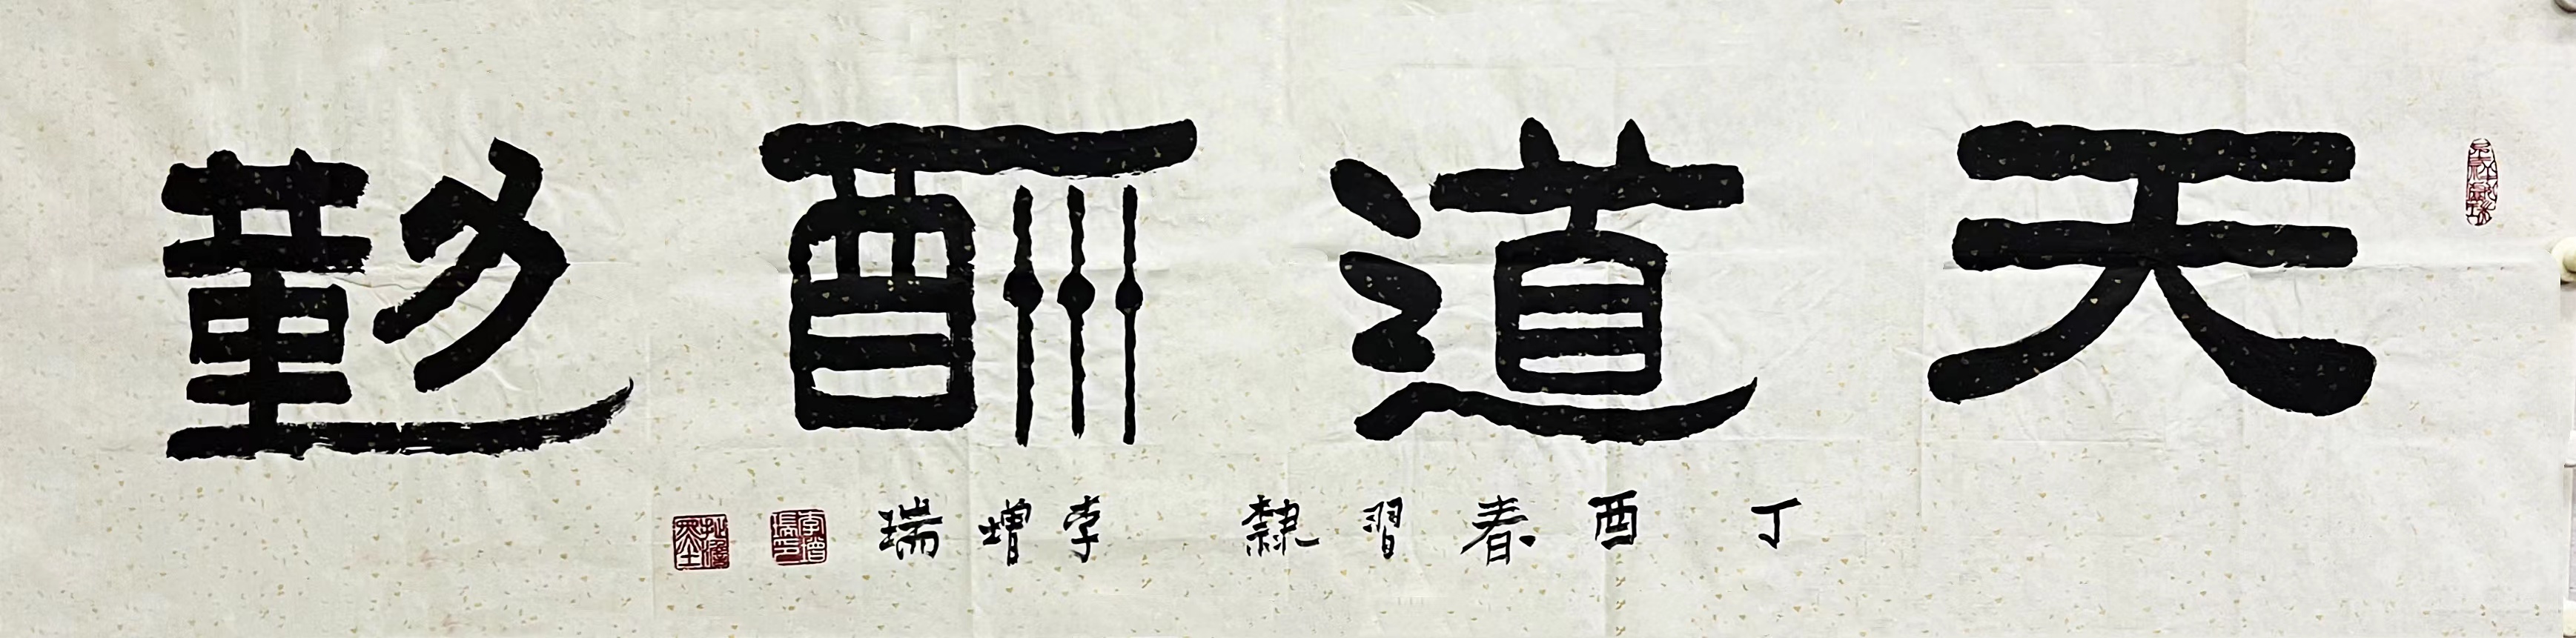 天道酬勤
丁酉春習隸 李增瑞